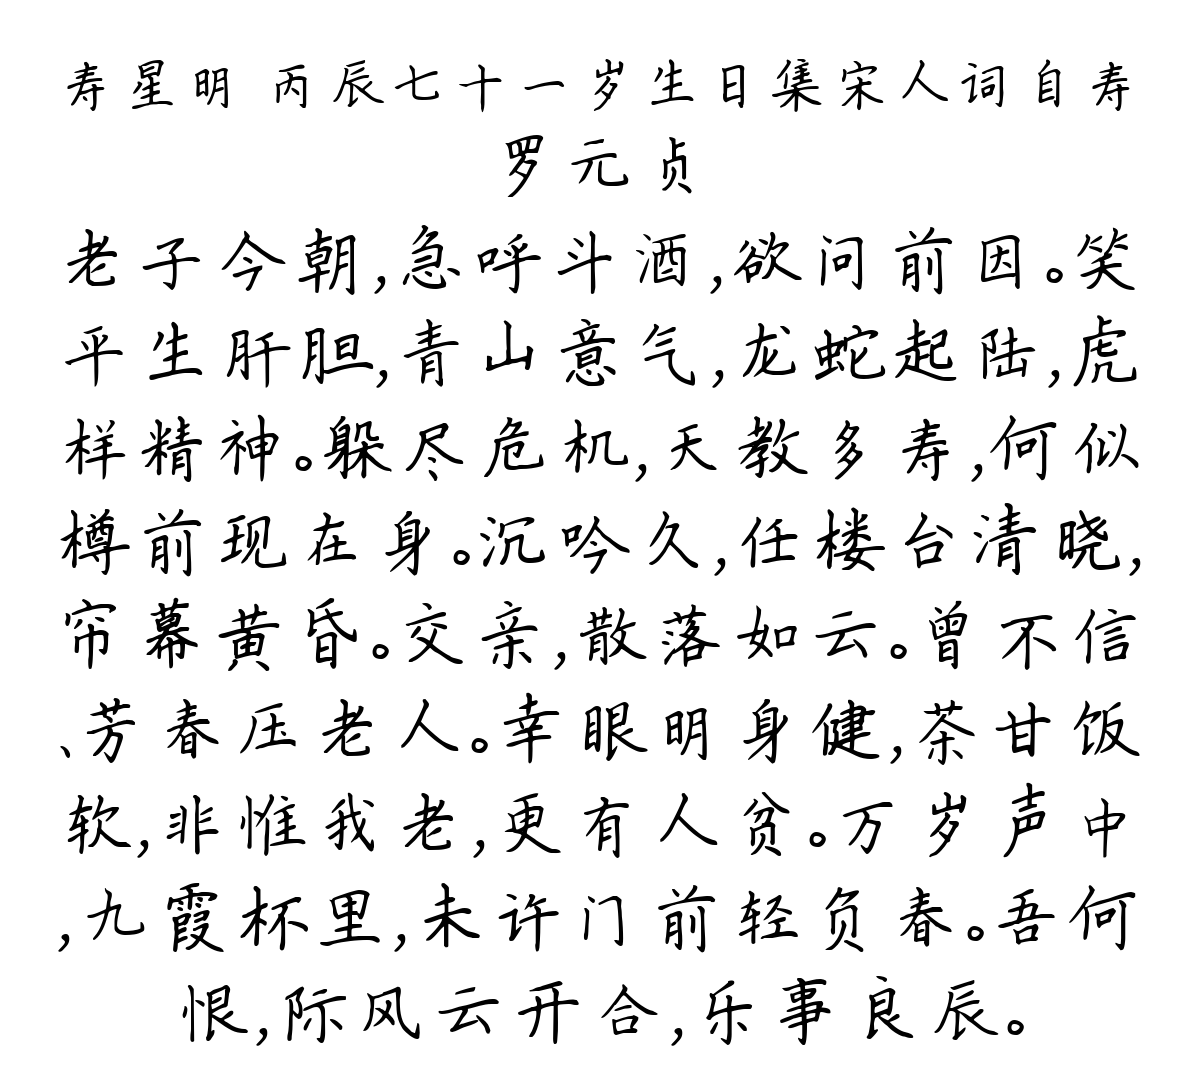 寿星明 丙辰七十一岁生日集宋人词自寿
罗元贞
老子今朝,急呼斗酒,欲问前因。笑
平生肝胆,青山意气,龙蛇起陆,虎
样精神。躲尽危机,天教多寿,何似
樽前现在身。沉吟久,任楼台清晓,
帘幕黄昏。交亲,散落如云。曾不信
、芳春压老人。幸眼明身健,茶甘饭
软,非惟我老,更有人贫。万岁声中
,九霞杯里,未许门前轻负春。吾何
恨,际风云开合,乐事良辰。